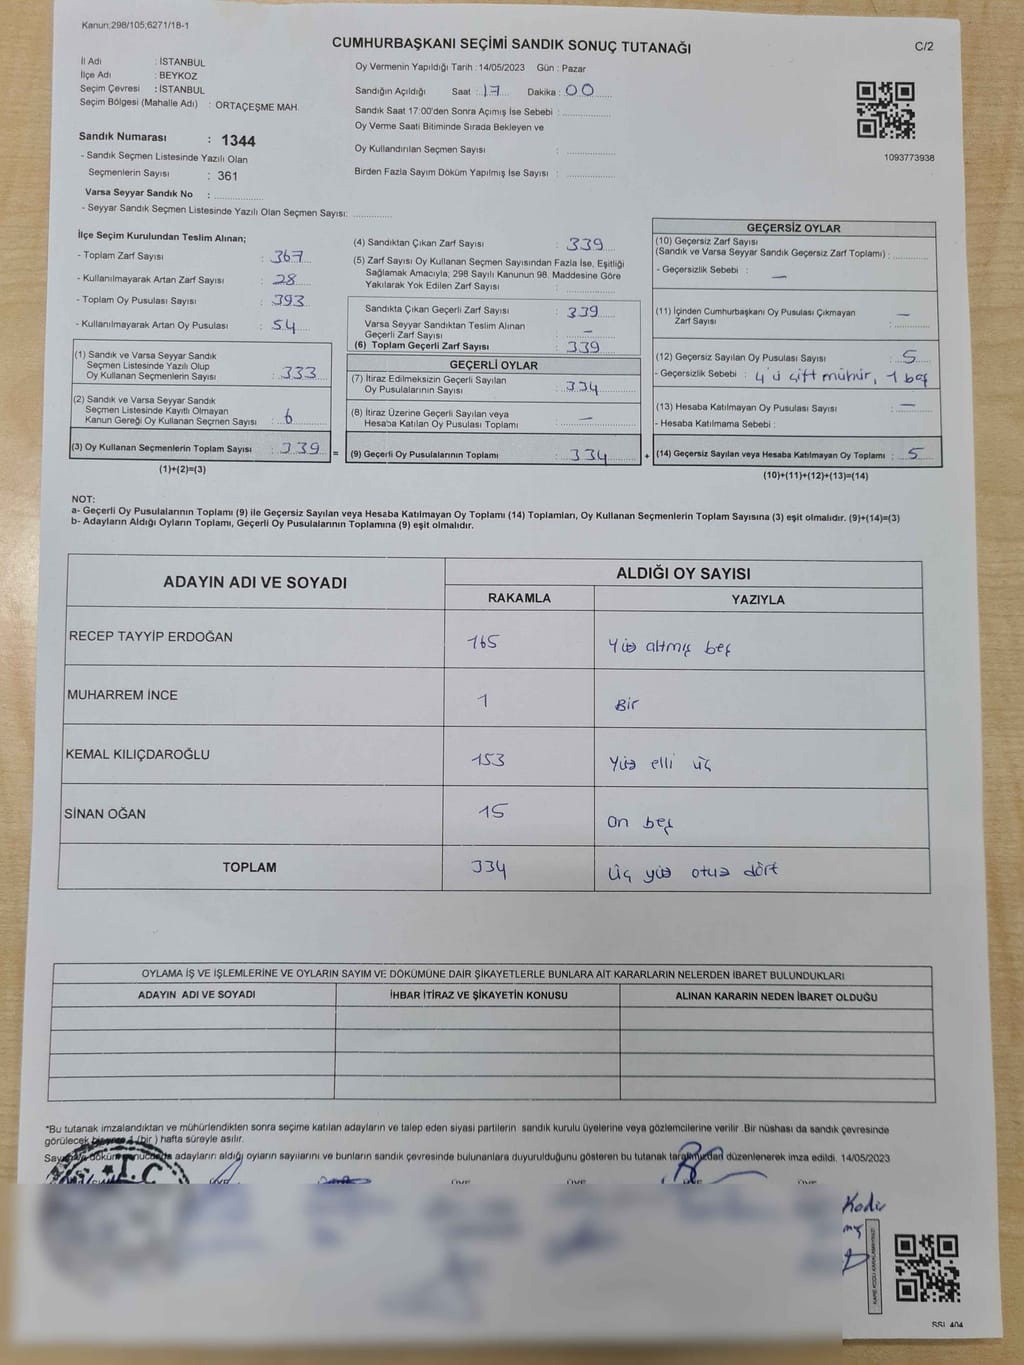 Kanun;298/105;6271/18-1
CUMHURBAŞKANI SEÇİMİ SANDIK SONUÇ TUTANAĞI
C/2
İl Adı : İSTANBUL
İlçe Adı : BEYKOZ
Seçim Çevresi : İSTANBUL
Seçim Bölgesi (Mahalle Adı) : ORTAÇEŞME MAH.
Sandık Numarası : 1344
- Sandık Seçmen Listesinde Yazılı Olan
Seçmenlerin Sayısı : 361
Varsa Seyyar Sandık No :
- Seyyar Sandık Seçmen Listesinde Yazılı Olan Seçmen Sayısı:
Oy Vermenin Yapıldığı Tarih : 14/05/2023 Gün : Pazar
Sandığın Açıldığı Saat : 17 Dakika : 00
Sandık Saat 17:00'den Sonra Açımış İse Sebebi :
Oy Verme Saati Bitiminde Sırada Bekleyen ve
Oy Kullandırılan Seçmen Sayısı :
Birden Fazla Sayım Döküm Yapılmış İse Sayısı :
1093773938
İlçe Seçim Kurulundan Teslim Alınan;
- Toplam Zarf Sayısı : 367
- Kullanılmayarak Artan Zarf Sayısı : 28
- Toplam Oy Pusulası Sayısı : 393
- Kullanılmayarak Artan Oy Pusulası : 54
(1) Sandık ve Varsa Seyyar Sandık
Seçmen Listesinde Yazılı Olup
Oy Kullanan Seçmenlerin Sayısı : 333
(2) Sandık ve Varsa Seyyar Sandık
Seçmen Listesinde Kayıtlı Olmayan
Kanun Gereği Oy Kullanan Seçmen Sayısı : 6
(3) Oy Kullanan Seçmenlerin Toplam Sayısı : 339 =
(1)+(2)=(3)
(4) Sandıktan Çıkan Zarf Sayısı : 339
(5) Zarf Sayısı Oy Kullanan Seçmen Sayısından Fazla İse, Eşitliği
Sağlamak Amacıyla; 298 Sayılı Kanunun 98. Maddesine Göre
Yakılarak Yok Edilen Zarf Sayısı :
Sandıkta Çıkan Geçerli Zarf Sayısı : 339
Varsa Seyyar Sandıktan Teslim Alınan
Geçerli Zarf Sayısı : —
(6) Toplam Geçerli Zarf Sayısı : 339
GEÇERLİ OYLAR
(7) İtiraz Edilmeksizin Geçerli Sayılan
Oy Pusulalarının Sayısı : 334
(8) İtiraz Üzerine Geçerli Sayılan veya
Hesaba Katılan Oy Pusulası Toplamı : —
(9) Geçerli Oy Pusulalarının Toplamı : 334 +
GEÇERSİZ OYLAR
(10) Geçersiz Zarf Sayısı
(Sandık ve Varsa Seyyar Sandık Geçersiz Zarf Toplamı) :
- Geçersizlik Sebebi : —
(11) İçinden Cumhurbaşkanı Oy Pusulası Çıkmayan —
Zarf Sayısı :
(12) Geçersiz Sayılan Oy Pusulası Sayısı : 5
- Geçersizlik Sebebi : 4'ü çift mühür, 1 boş
(13) Hesaba Katılmayan Oy Pusulası Sayısı : —
- Hesaba Katılmama Sebebi :
(14) Geçersiz Sayılan veya Hesaba Katılmayan Oy Toplamı : 5
(10)+(11)+(12)+(13)=(14)
NOT:
a- Geçerli Oy Pusulalarının Toplamı (9) ile Geçersiz Sayılan veya Hesaba Katılmayan Oy Toplamı (14) Toplamları, Oy Kullanan Seçmenlerin Toplam Sayısına (3) eşit olmalıdır. (9)+(14)=(3)
b- Adayların Aldığı Oyların Toplamı, Geçerli Oy Pusulalarının Toplamına (9) eşit olmalıdır.
ADAYIN ADI VE SOYADI
ALDIĞI OY SAYISI
RAKAMLA YAZIYLA
RECEP TAYYİP ERDOĞAN 165 Yüz altmış beş
MUHARREM İNCE 1 Bir
KEMAL KILIÇDAROĞLU 153 Yüz elli üç
SİNAN OĞAN 15 On beş
TOPLAM 334 Üç yüz otuz dört
OYLAMA İŞ VE İŞLEMLERİNE VE OYLARIN SAYIM VE DÖKÜMÜNE DAİR ŞİKAYETLERLE BUNLARA AİT KARARLARIN NELERDEN İBARET BULUNDUKLARI
ADAYIN ADI VE SOYADI İHBAR İTİRAZ VE ŞİKAYETİN KONUSU ALINAN KARARIN NEDEN İBARET OLDUĞU
*Bu tutanak imzalandıktan ve mühürlendikten sonra seçime katılan adayların ve talep eden siyasi partilerin sandık kurulu üyelerine veya gözlemcilerine verilir. Bir nüshası da sandık çevresinde
görülecek 1 (bir ) hafta süreyle asılır.
adayların aldığı oyların sayılarını ve bunların sandık çevresinde bulunanlara duyurulduğunu gösteren bu tutanak düzenlenerek imza edildi. 14/05/2023
T.C
Kadir